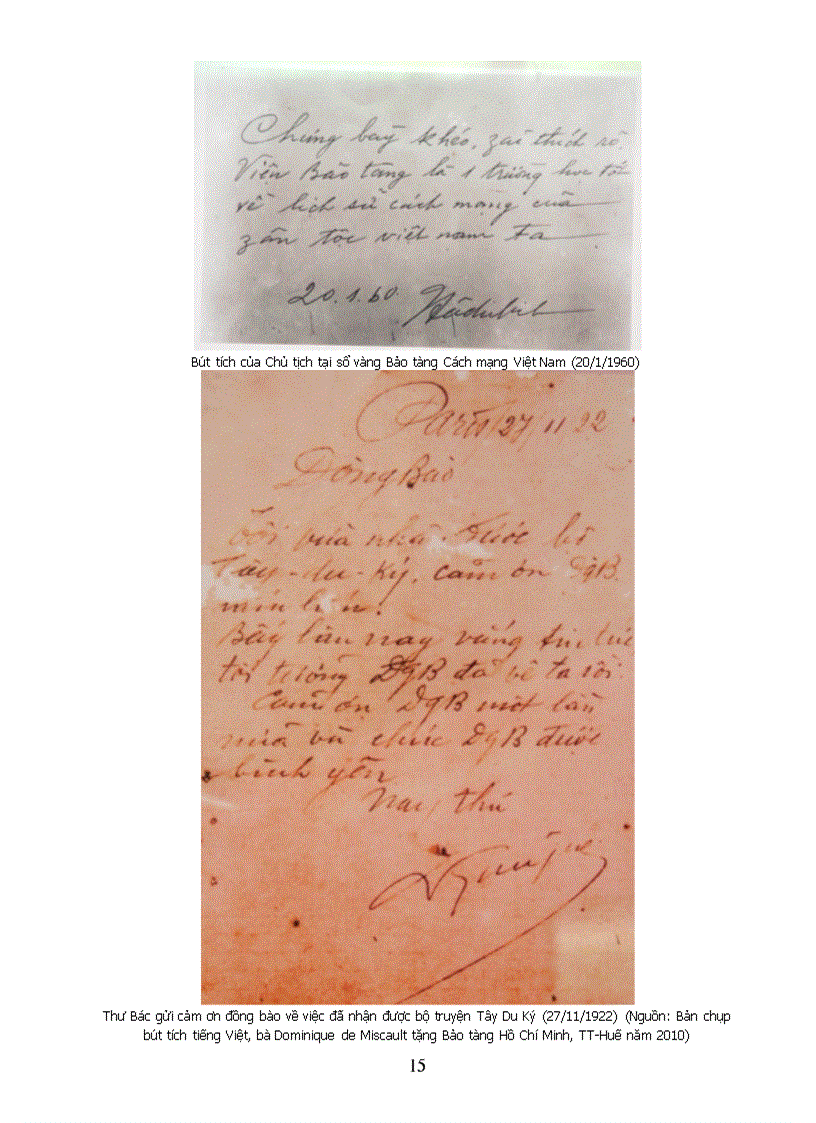 Chưng bày khéo, zải thích rõ.
Viện Bảo tàng là 1 trường học tốt
về lịch sử cách mạng của
zân tộc việt nam ta
20.1.60
Bút tích của Chủ tịch tại sổ vàng Bảo tàng Cách mạng Việt Nam (20/1/1960)
Paris 27 11 22
Đồng Bào
Tôi vừa nhận được bộ
Tây-du-Ký. cảm ơn ĐgB.
Bấy lâu nay vắng tin tức
tôi tưởng ĐgB đã về ta rồi.
Cảm ơn ĐgB một lần
nữa và chúc ĐgB được
bình yên
Nay thư
Thư Bác gửi cảm ơn đồng bào về việc đã nhận được bộ truyện Tây Du Ký (27/11/1922) (Nguồn: Bản chụp
bút tích tiếng Việt, bà Dominique de Miscault tặng Bảo tàng Hồ Chí Minh, TT-Huế năm 2010)
15